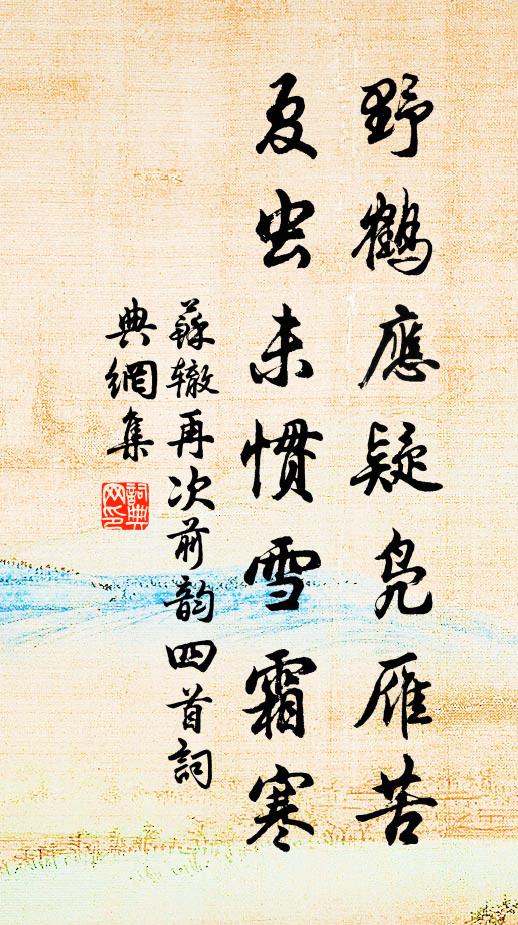 野鶴應疑凫雁苦
夏虫未慣雪霜寒
蘇辙再次前韵四首詞
典網集
詞典
网印